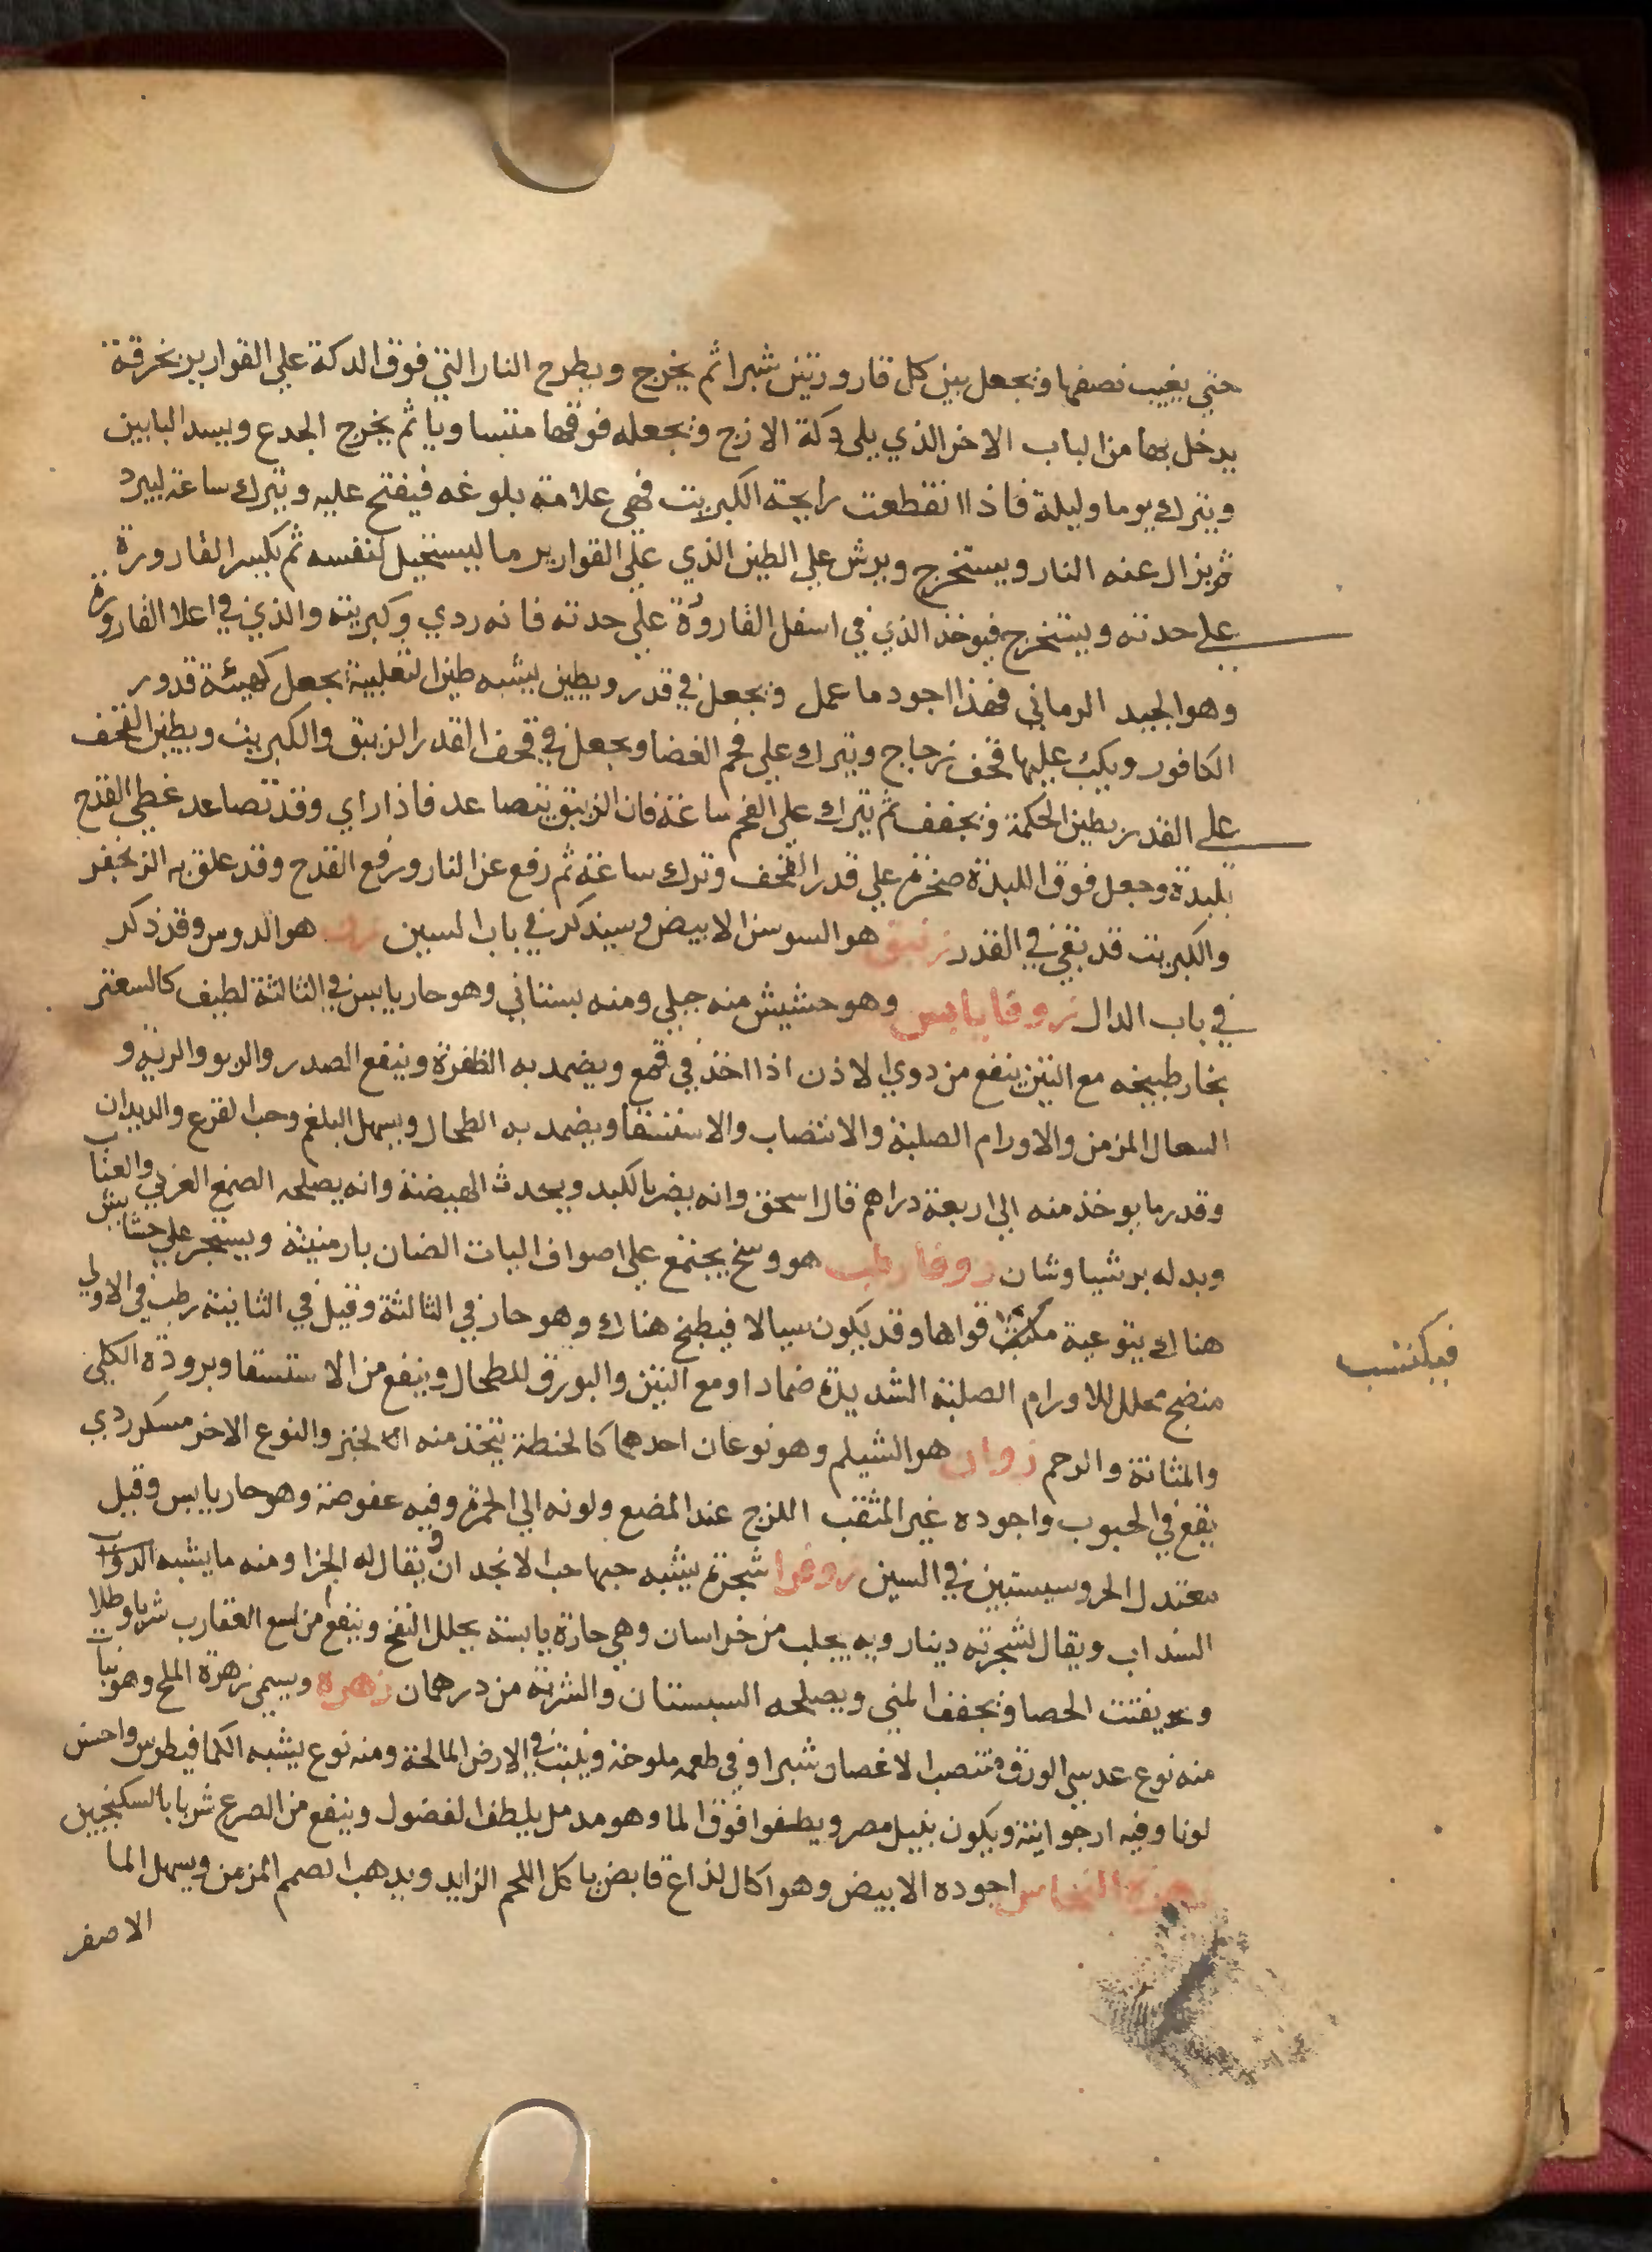 حتي يغيب نصفها ونجعل بين كل قارورتين شبرا ثم يخرج ويطرح النار التي فوق الدكة علي القوارير بخرقة
يدخل بها من الباب الاخر الذي يلي دكة الازج ونجعله فوقها متساويا ثم يخرج الجدع ويسد البابين
ويترك يوما وليلة فاذا انقطعت رايحة الكبريت فهي علامة بلوغه فيفتح عليه ويترك ساعة ليبرد
ثم يزال عنه النار ويستخرج ويرش علي الطين الذي علي القوارير ما ليستخيل لنفسه ثم يكسر القارورة
علي حدته ويستخرج فيوخذ الذي في اسفل القارورة علي حدته فانه ردي وكبريته والذي في اعلا القارورة
وهو الجيد الرماني فهذا اجود ما عمل ونجعل في قدر ويطين بيشبه طين التعلبية يجعل كهيئة قدور
الكافور ويكب عليها قحف زجاج ويترك علي فحم الغضا ويجعل في قحف القدر الزيبق والكبريت ويطين القحف
علي القدر بطين الحكمة ونجفف ثم يترك علي الفحم ساعة فان الزيبق يتصاعد فاذا راي وقد تصاعد غطي القدح
بلبدة وجعل فوق اللبدة صخرة علي قدر القحف وترك ساعة ثم رفع عن النار ورفع القدح وقد علق به الزنجفر
والكبريت قد بقي في القدر زنبق هو السوسن الابيض وسيذكر في باب السين هو الدوس وقد ذكر
في باب الدال زوفا يابس وهو حشيش منه جبلي ومنه بستاني وهو حار يابس في الثالثة لطيف كالسعتر
بخار طبيخه مع التين ينفع من دوي الاذن اذا اخذ في قمع ويضمد به الظفرة وينفع الصدر والربو والرية و
السعال المزمن والاورام الصلبة والانتصاب والاستسقا ويضمد به الطحال ويسهل البلغم وحب القرع والديدان
وقدر ما يوخذ منه الي اربعة دراهم قال اسحق وانه يضر بالكبد ويحدث الهيضة وانه يصلحه الصمغ العربي والعناب
وبدله برشياوشان زوفا رطب هو وسخ يجتمع علي اصواف اليات الضان بارمنية ويستجر علي حشايش
هناك يتوعية مكتسب قواها وقد يكون سيالا فيطبخ هناك وهو حار في الثالثة وقيل في الثانية رطب في الاولي
فيكتسب
منضج محلل للاورام الصلبة الشديدة ضمادا ومع التين والبورق للطحال وينفع من الاستسقا وبرودة الكلي
والمثانة والرحم زوان هو الشيلم وهو نوعان احدهما كالحنطة يتخذ منه الخبز والنوع الاخر مسكر ردي
يقع في الحبوب واجوده غير المثقب اللزج عند المضغ ولونه الي الحمرة وفيه عفوصة وهو حار يابس وقيل
معتدل الحر وسيستبين في السين زوفرا شجرة يشبه حبها حب الانجدان يقال له الجزا ومنه ما يشبه الدوقا
السداب ويقال لشجرته دينارويه يجلب من خراسان وهي حارة يابسة يحلل النفخ وينفع من لسع العقارب شربا وطلا
ويفتت الحصا ونجفف المني ويصلحه السبستان والشربة من درهمان زهرة ويسمي زهرة الملح وهو نبات
منه نوع عدسي الورق منتصب الاغصان شبرا وفي طعمه ملوحة وينبت في الارض المالحة ومنه نوع يشبه الكمافيطوس واحسن
لونا وفيه ارجوانية ويكون بنيل مصر ويطفوا فوق الما وهو مدمل يلطف الفضول وينفع من الصرع شربا بالسكنجبين
زهرة النحاس اجوده الابيض وهو اكال لذاع قابض ياكل اللحم الزايد ويدهب الصمم المزمن ويسهل الما
الاصفر